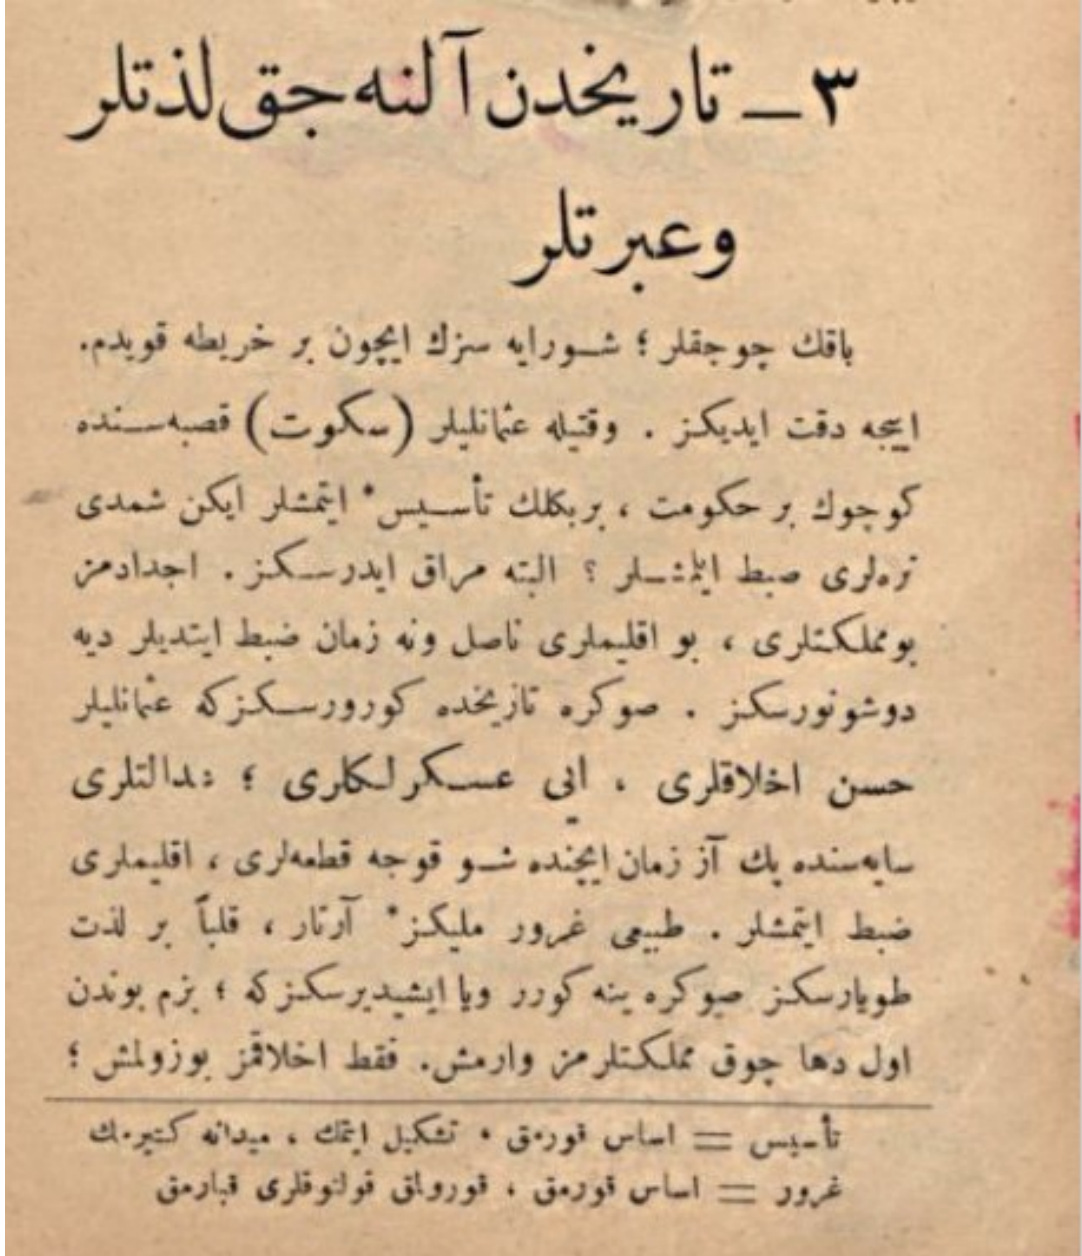 ٣ – تاريخدن آلنه‌جق لذتلر
وعبرتلر
باقك چوجقلر ؛ شورايه سزك ايچون بر خريطه قويدم.
اييجه دقت ايديكز . وقتيله عثمانليلر (سكوت) قصبه‌سنده
كوچوك بر حكومت ، بر بكلك تأسيس* ايتمشلر ايكن شمدى
نره‌لرى ضبط ايلمشلر ؟ البته مراق ايدرسكز . اجدادمز
بو مملكتلرى ، بو اقليملرى ناصل ونه زمان ضبط ايتديلر ديه
دوشونورسكز . صوكره تاريخده كورورسكزكه عثمانليلر
حسن اخلاقلرى ، ايى عسكرلكلرى ؛ عدالتلرى
سايه‌سنده پك آز زمان ايچنده شو قوجه قطعه‌لرى ، اقليملرى
ضبط ايتمشلر . طبيعى غرور مليكز* آرتار ، قلباً بر لذت
طويارسكز صوكره ينه كورر ويا ايشيديرسكزكه ؛ بزم بوندن
اول دها چوق مملكتلرمز وارمش. فقط اخلاقمز بوزولمش ؛
تأسيس = اساس قورمق ، تشكيل ايتمك ، ميدانه كتيرمك
غرور = اساس قورمق ، قورولمق قولتوقلرى قبارمق